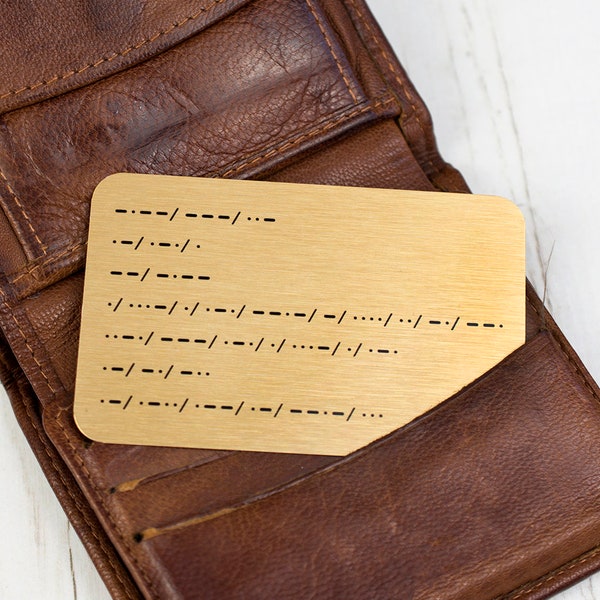 –·––/–––/··–
·–/·–·/·
––/–·––
·/···–/·/·–·/––·–/–/····/··/–·/––·
··–·/–––/·–·/·/···–/·/·–·
·–/–·/–··
·–/·–··/·––/·–/––·–/···